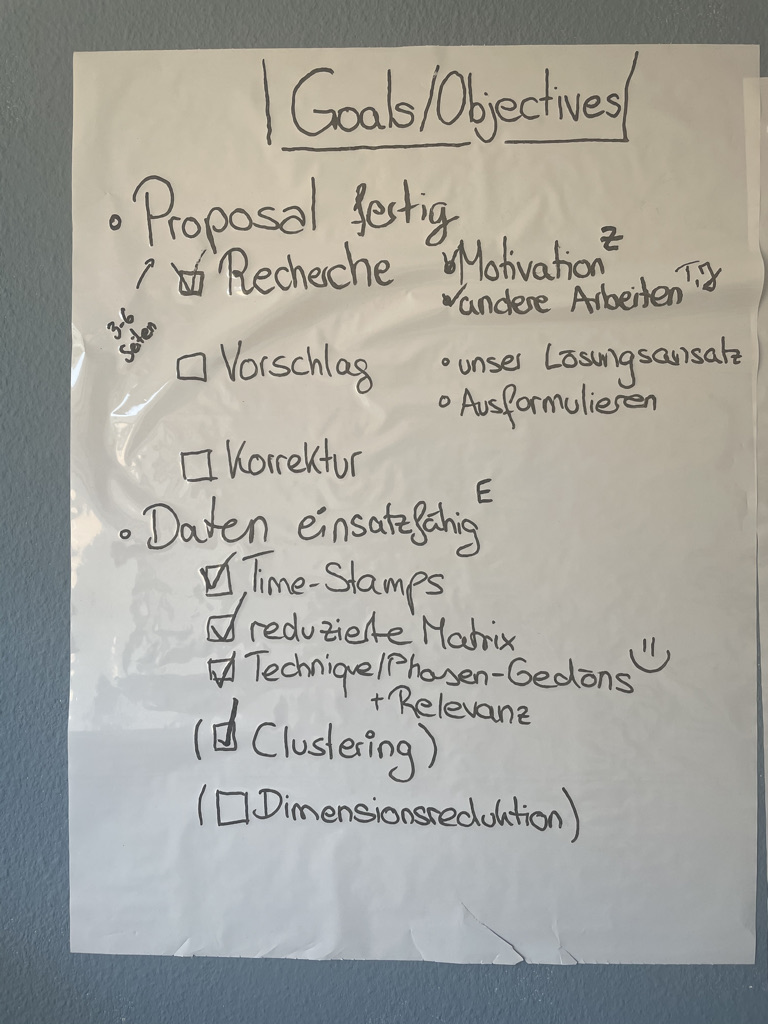 Goals/Objectives
• Proposal fertig
3-6 Seiten
☑ Recherche
Motivation Z
✓ andere Arbeiten T, J
☐ Vorschlag
• unser Lösungsansatz
• Ausformulieren
☐ Korrektur
• Daten einsatzfähig E
☑ Time-Stamps
☑ reduzierte Matrix
☑ Technique/Phasen-Gedöns
+ Relevanz
(☑ Clustering)
(☐ Dimensionsreduktion)